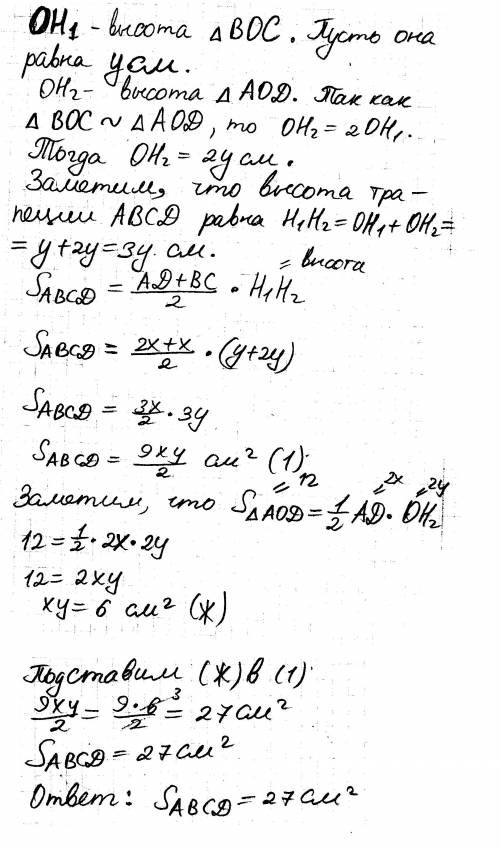 OH₁ - высота △BOC. Пусть она
равна y см.
OH₂ - высота △AOD. Так как
△BOC ~ △AOD, то OH₂ = 2OH₁.
Тогда OH₂ = 2y см.
Заметим, что высота тра-
пеции ABCD равна H₁H₂ = OH₁ + OH₂ =
= y + 2y = 3y см.
= высота
S_ABCD = (AD + BC)/2 · H₁H₂
S_ABCD = (2x + x)/2 · (y + 2y)
S_ABCD = 3x/2 · 3y
S_ABCD = 9xy/2 см² (1).
= 12 = 2x = 2y
Заметим, что S_△AOD = 1/2 AD · OH₂
12 = 1/2 · 2x · 2y
12 = 2xy
xy = 6 см² (Ж)
Подставим (Ж) в (1).
9xy/2 = 9 · 6³/2 = 27 см²
S_ABCD = 27 см²
Ответ: S_ABCD = 27 см²